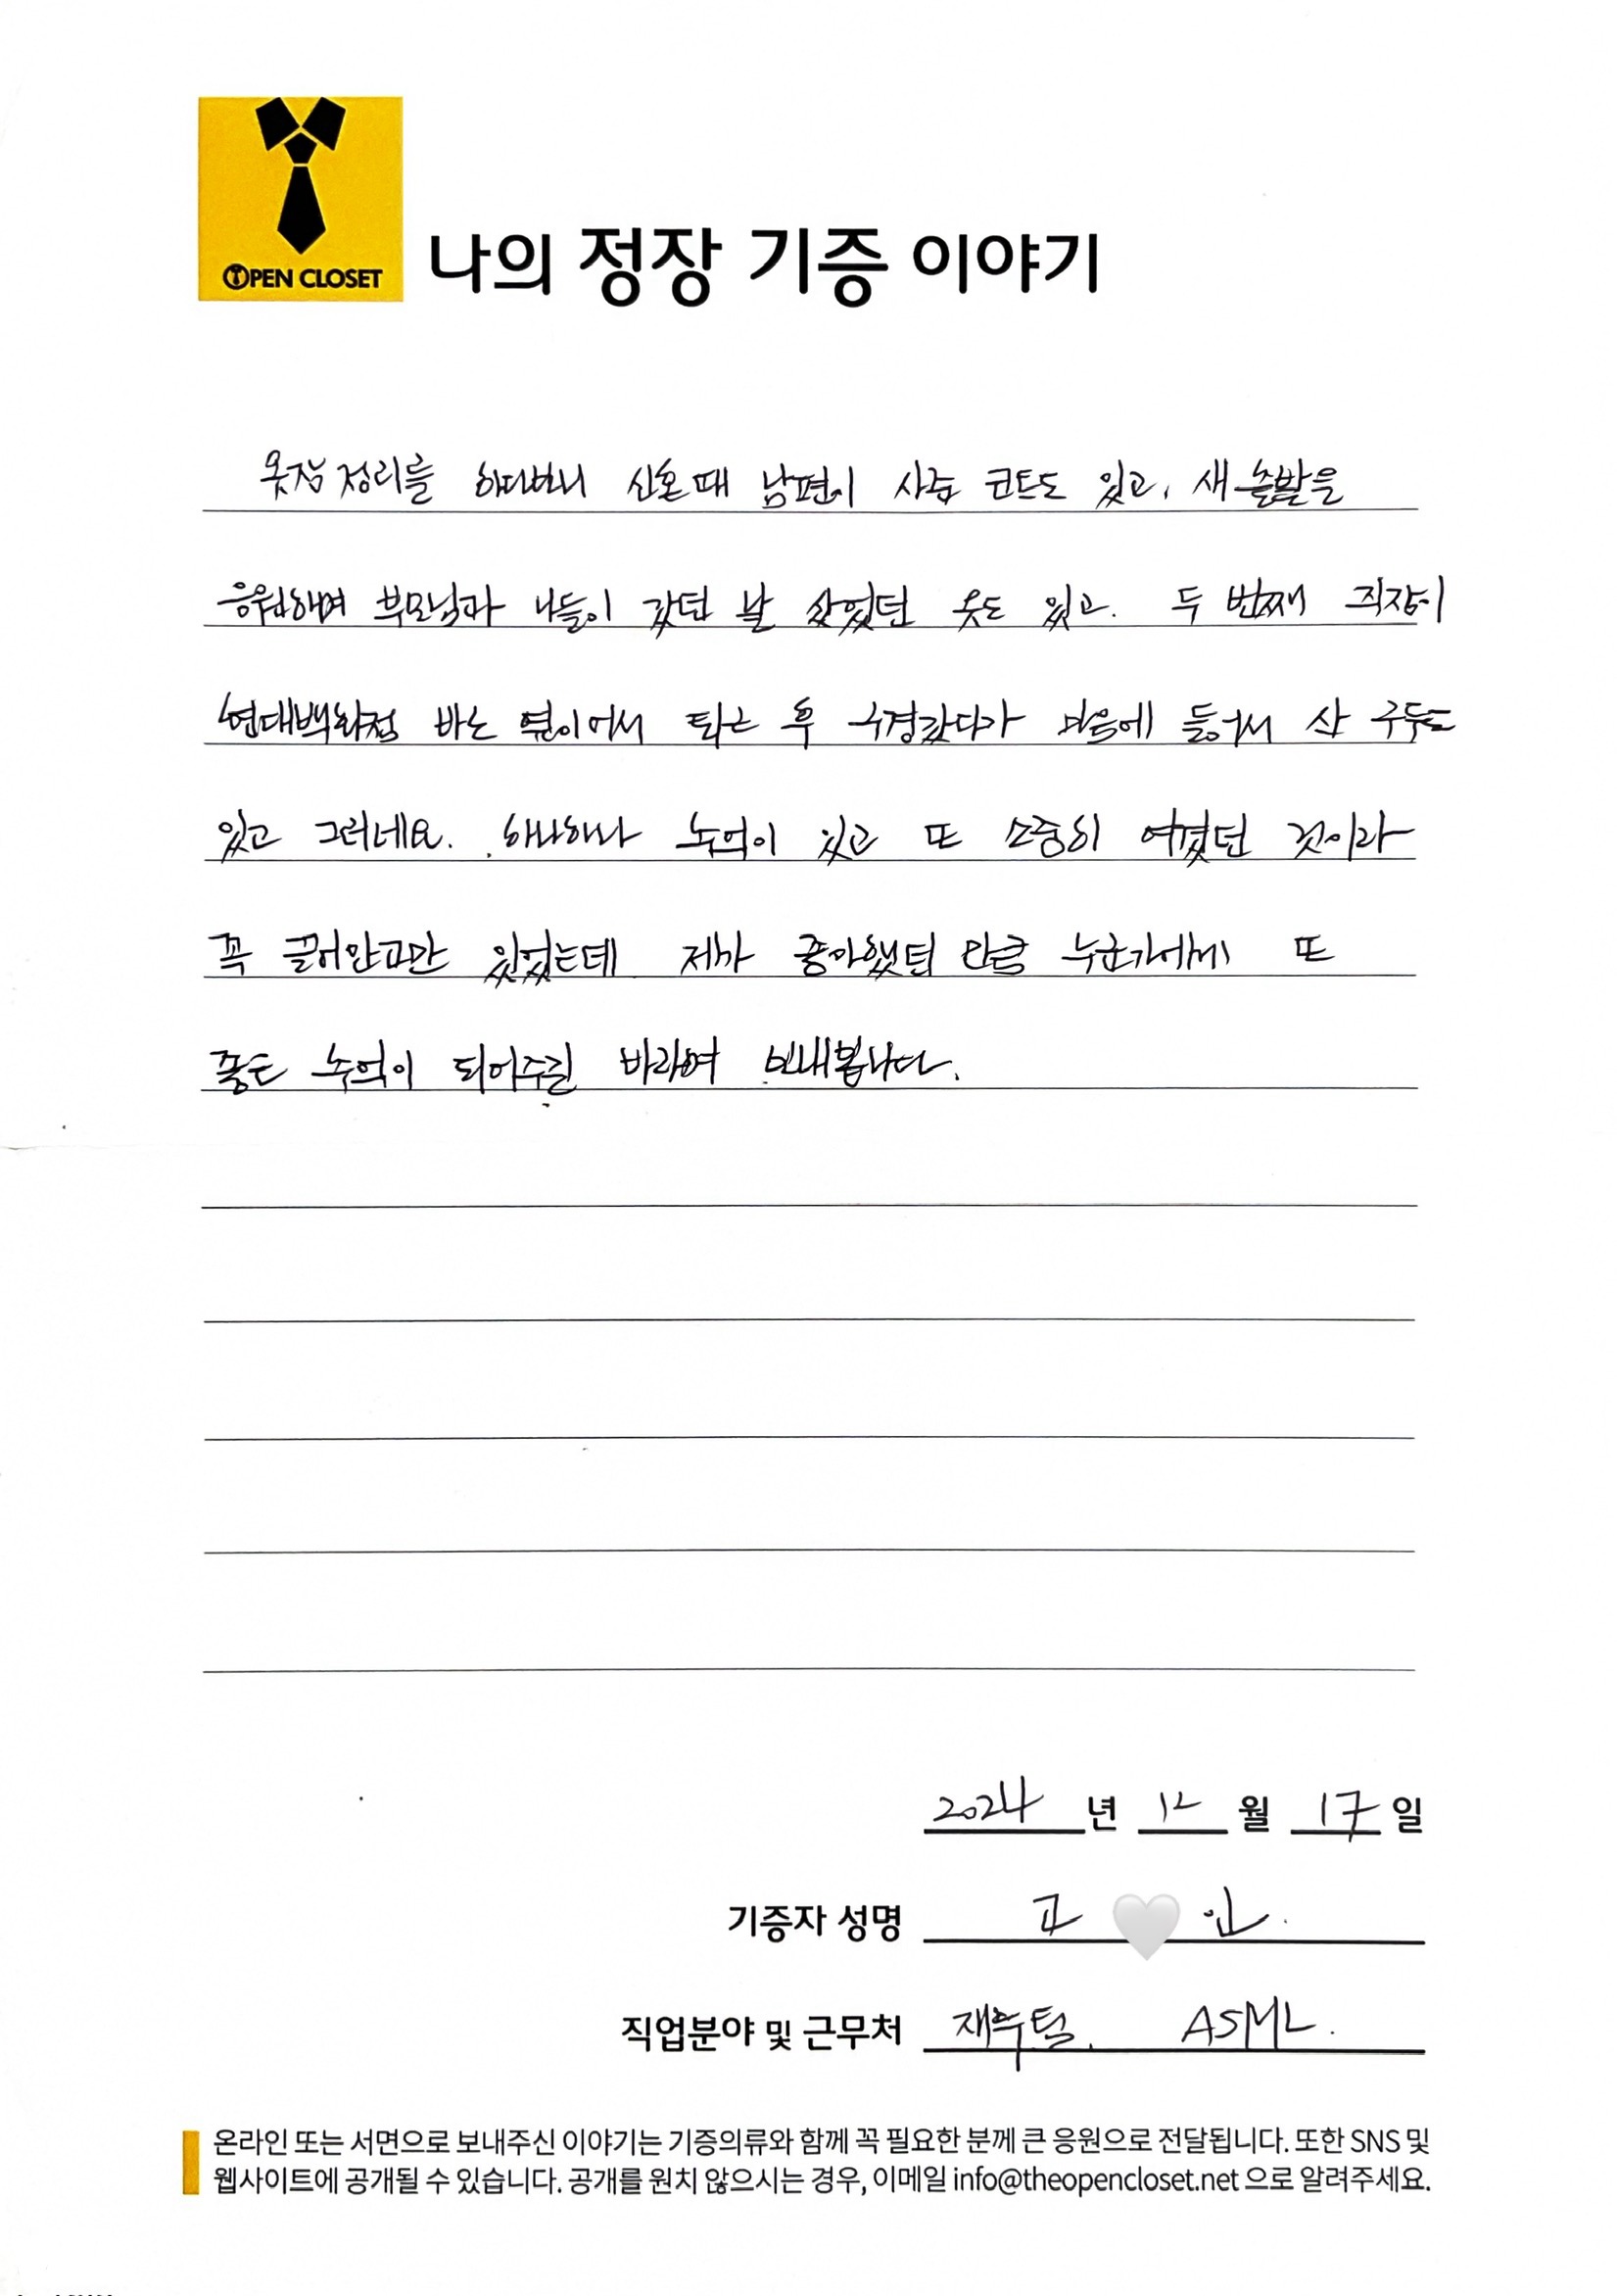 OPEN CLOSET
나의 정장 기증 이야기
옷장 정리를 하다보니 신혼때 남편이 사준 코트도 있고, 새출발을
응원하며 부모님과 나들이 갔던 날 샀었던 옷도 있고. 두 번째 직장이
현대백화점 바로 옆이어서 퇴근 후 구경갔다가 마음에 들어서 산 구두도
있고 그러네요. 하나하나 추억이 있고 또 소중히 여겼던 것이라
꼭 끌어안고만 있었는데 제가 좋아했던 만큼 누군가에게 또
좋은 추억이 되어주길 바라며 보내봅니다.
2024 년 12 월 17 일
기증자 성명 고 🤍 인.
직업분야 및 근무처 재무팀. ASML.
온라인 또는 서면으로 보내주신 이야기는 기증의류와 함께 꼭 필요한 분께 큰 응원으로 전달됩니다. 또한 SNS 및
웹사이트에 공개될 수 있습니다. 공개를 원치 않으시는 경우, 이메일 info@theopencloset.net 으로 알려주세요.